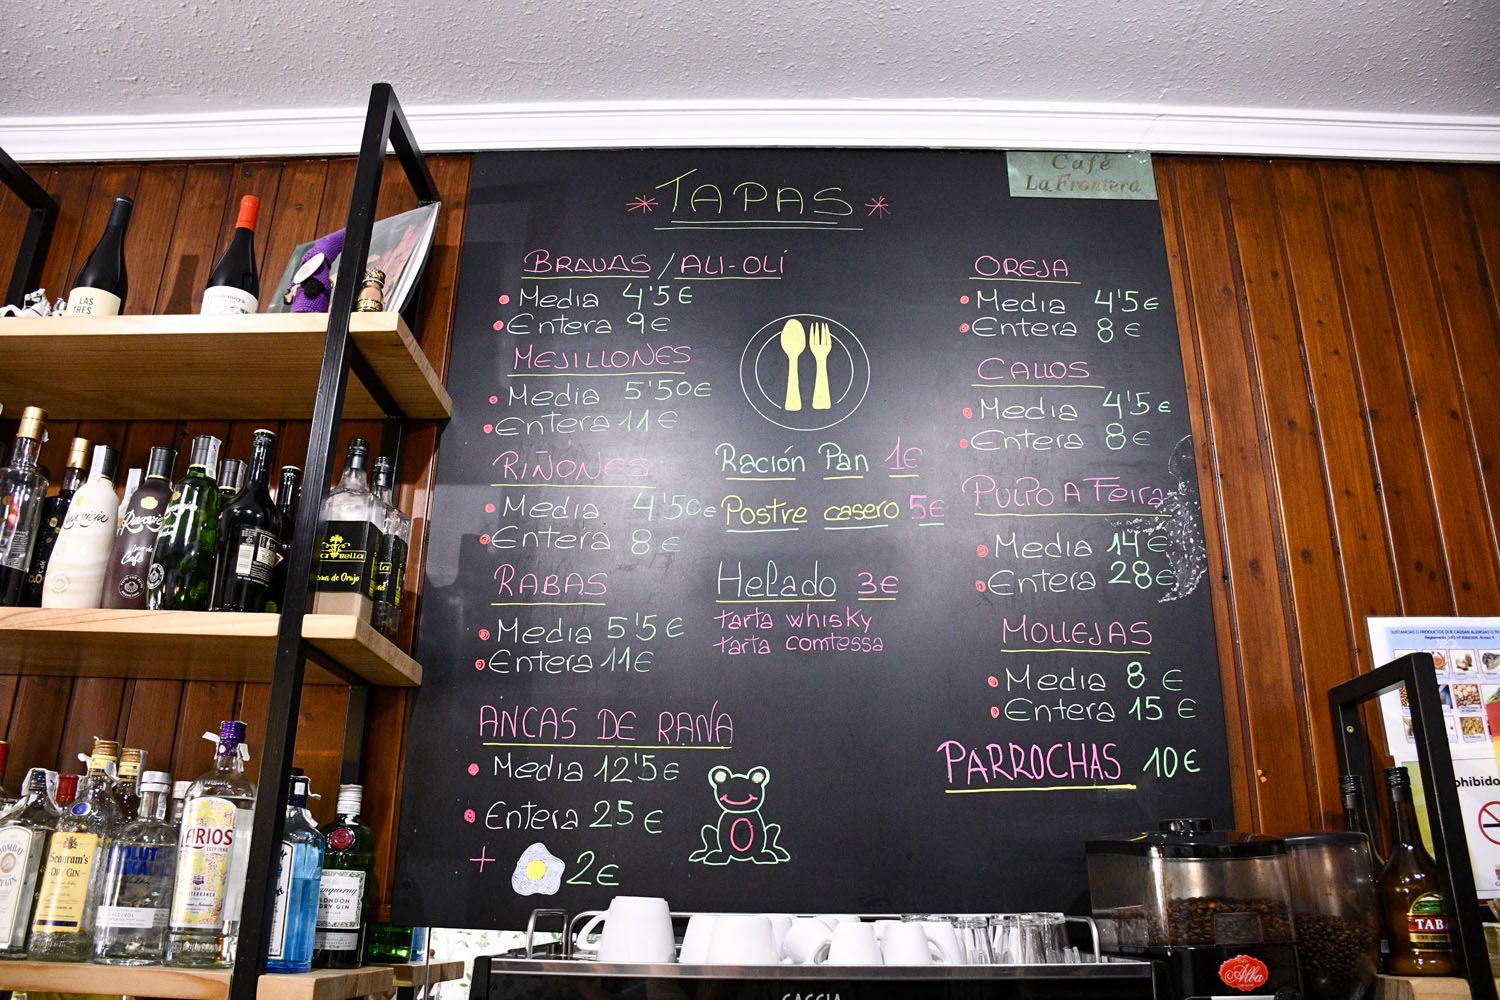 Café
La Frontera
* TAPAS *
BRAVAS / ALI-OLÍ
• Media 4'5€
• Entera 9€
MEJILLONES
• Media 5'50€
• Entera 11€
RIÑONES
• Media 4'50€
• Entera 8€
RABAS
• Media 5'5€
• Entera 11€
ANCAS DE RANA
• Media 12'5€
• Entera 25€
+ 2€
Ración Pan 1€
Postre casero 5€
Helado 3€
tarta whisky
tarta comtessa
OREJA
• Media 4'5€
• Entera 8€
CALLOS
• Media 4'5€
• Entera 8€
PULPO A Feira
• Media 14€
• Entera 28€
MOLLEJAS
• Media 8€
• Entera 15€
PARROCHAS 10€
LAS
TRES
Ruavieja
Seagram's
DRY GIN
LARIOS
Tanqueray
LONDON
DRY GIN
GAGGIA
Alba